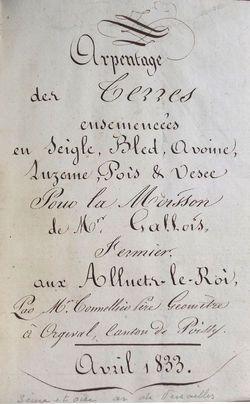 Arpentage
des Terres
ensemencées
en Seigle, Bled, Avoine,
Luzerne, Pois & Vesce
Pour la Moisson
de Mr. Gallois,
Fermier,
aux Alluets-le-Roi,
Par Mr. Père Géomètre
à Orgeval, Canton de Poissy.
Avril 1833.
Seine et Oise ar. de Versailles